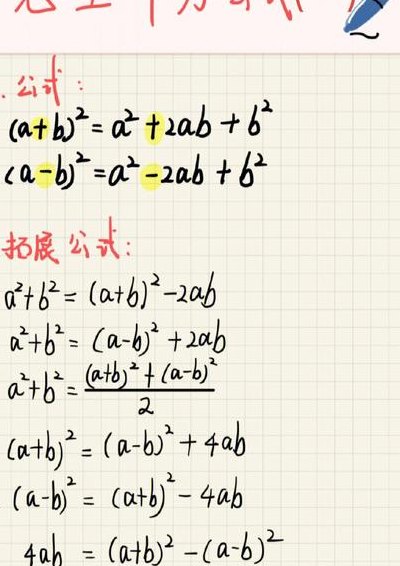 公式:
(a+b)²=a²+2ab+b²
(a-b)²=a²-2ab+b²
拓展公式:
a²+b²=(a+b)²-2ab
a²+b²=(a-b)²+2ab
a²+b²=\frac{(a+b)²+(a-b)²}{2}
(a+b)²=(a-b)²+4ab
(a-b)²=(a+b)²-4ab
4ab=(a+b)²-(a-b)²